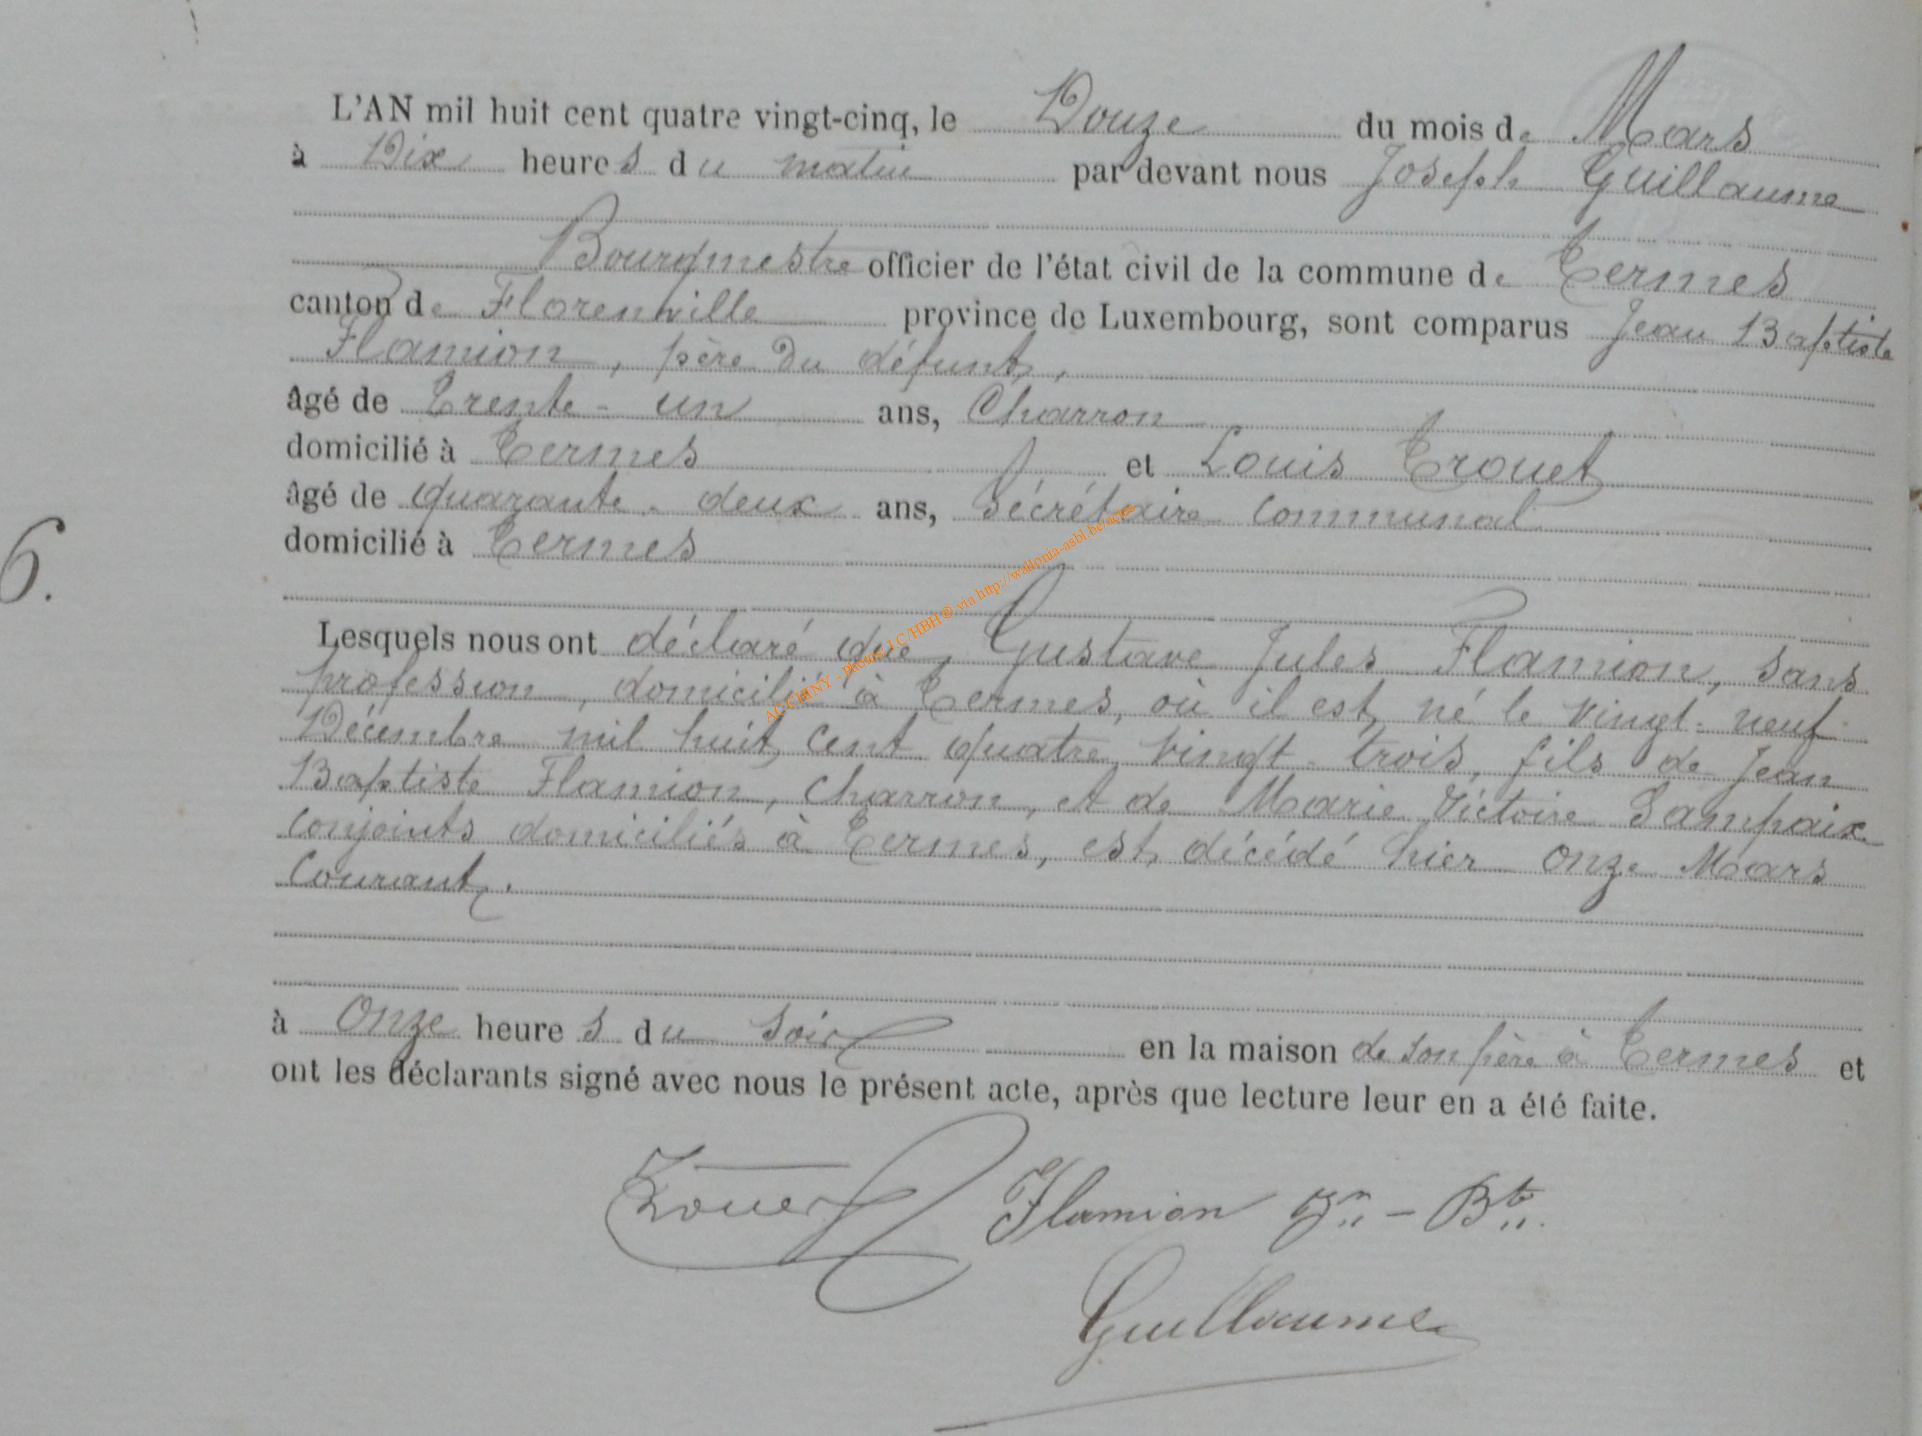 L'AN mil huit cent quatre vingt-cinq, le Douze du mois de Mars
à Dix heures du matin par devant nous Joseph Guillaume
Bourgmestre officier de l'état civil de la commune de Termes
canton de Florenville province de Luxembourg, sont comparus Jean Baptiste
Flamion, père du défunt,
âgé de Trente-un ans, Charron
domicilié à Termes et Louis Trouet
âgé de quarante-deux ans, Sécrétaire communal
domicilié à Termes
6.
Lesquels nous ont déclaré que, Gustave Jules Flamion, sans
profession, domicilié à Termes, où il est né le vingt-neuf
Décembre mil huit cent quatre vingt-trois, fils de Jean
Baptiste Flamion, Charron, et de Marie Victoire Sampaix
conjoints domiciliés à Termes, est décédé hier onze Mars
courant.
à Onze heures du soir en la maison de son père à Termes et
ont les déclarants signé avec nous le présent acte, après que lecture leur en a été faite.
Trouet Flamion Jn - Bte
Guillaume